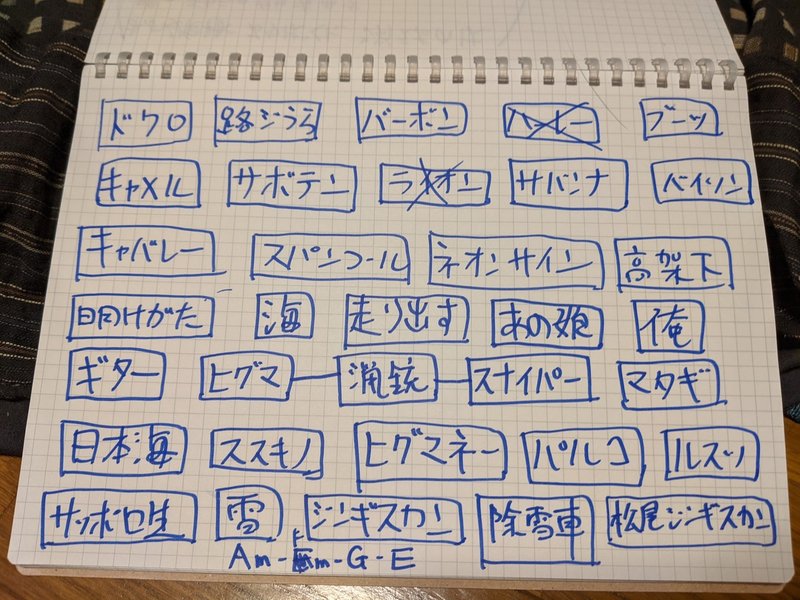 ドクロ 路ジうら バーボン ハーレー ブーツ
キャメル サボテン ライオン サバンナ バイソン
キャバレー スパンコール ネオンサイン 高架下
明けがた 海 走り出す あの娘 俺
ギター ヒグマ 猟銃 スナイパー マタギ
日本海 ススキノ ヒグマネー パルコ ルスツ
サッポロ生 雪 ジンギスカン 除雪車 松尾ジンギスカン
Am-Fm-G-E